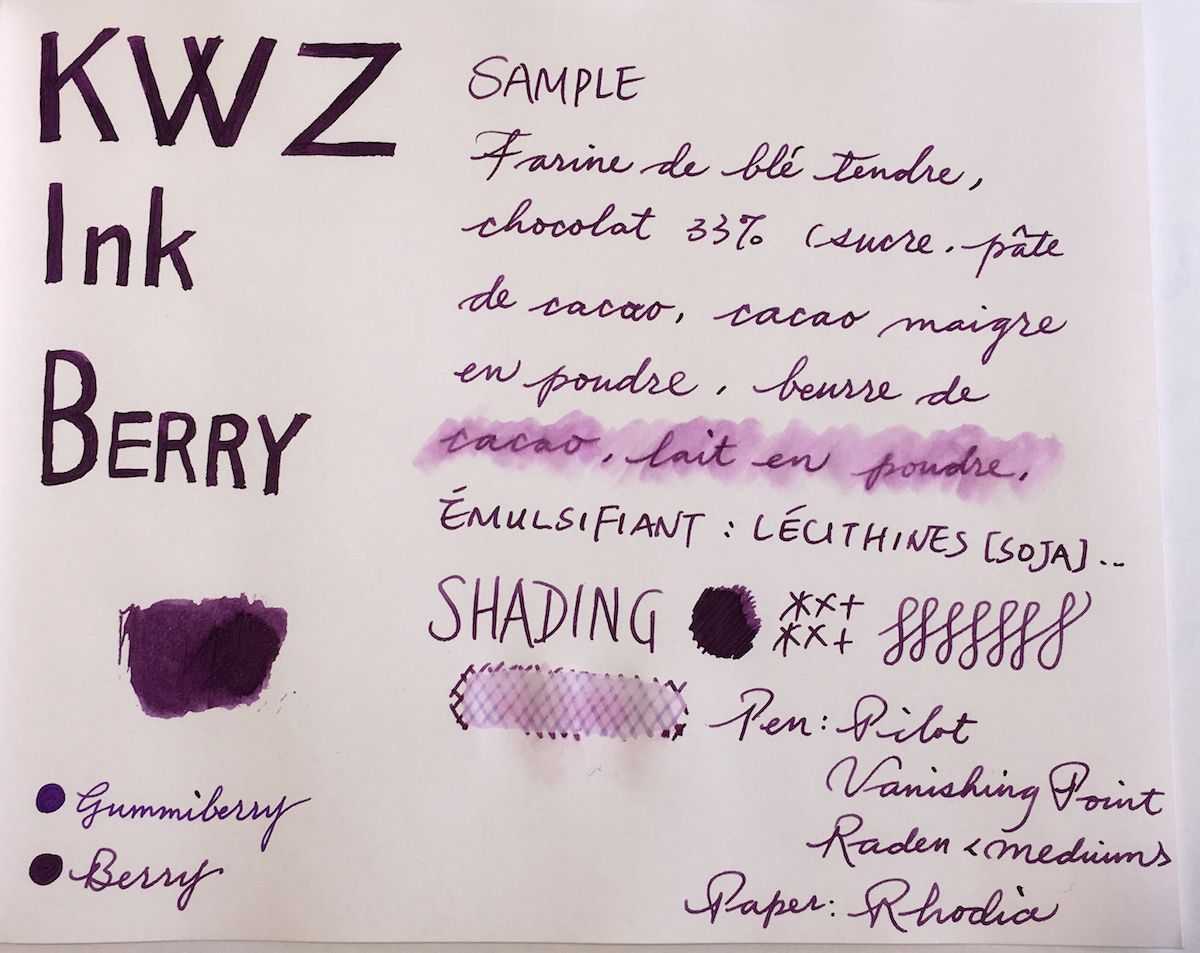 KWZ
Ink
BERRY
SAMPLE
Farine de blé tendre,
chocolat 33% (sucre, pâte
de cacao, cacao maigre
en poudre, beurre de
cacao, lait en poudre,
ÉMULSIFIANT : LÉCITHINES [SOJA]..
SHADING
Pen: Pilot
Vanishing Point
Raden <medium>
Paper: Rhodia
Gummiberry
Berry